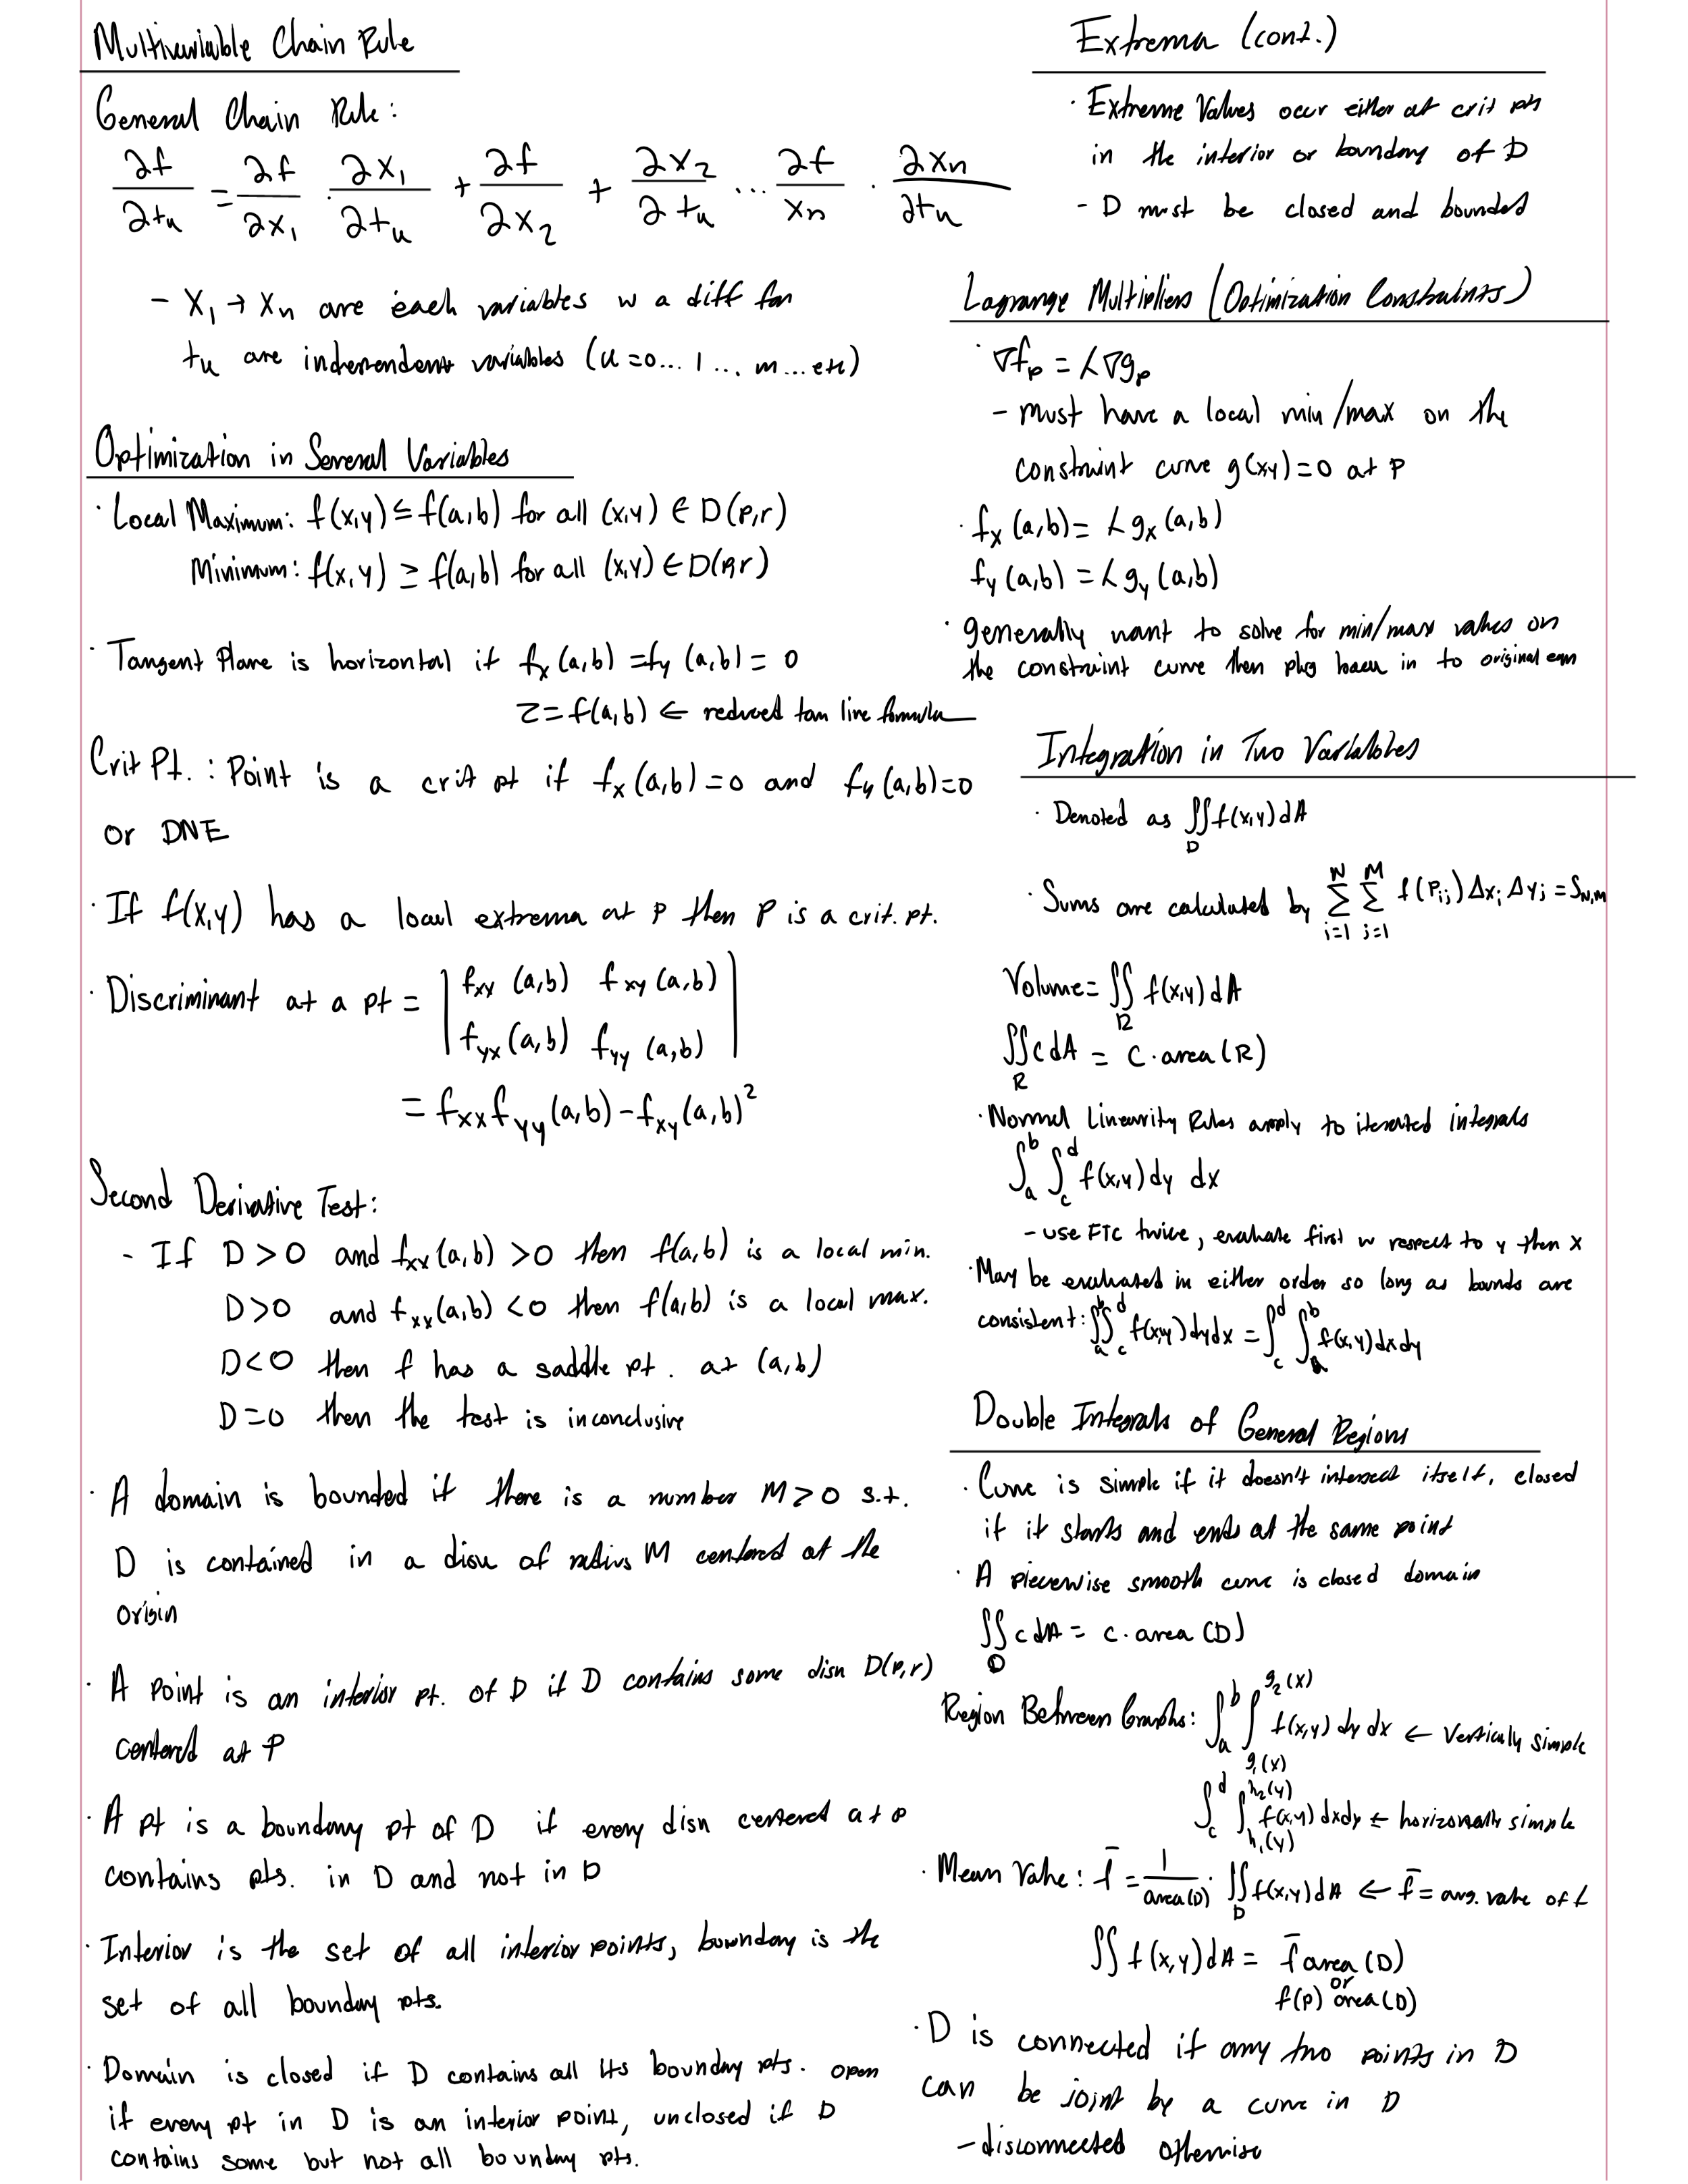 Multivariable Chain Rule
General Chain Rule:
∂f/∂tₖ = ∂f/∂x₁ · ∂x₁/∂tₖ + ∂f/∂x₂ + ∂x₂/∂tₖ ... ∂f/xₙ · ∂xₙ/∂tₖ
- X₁ → Xₙ are each variables w a diff fcn
tₖ are independent variables (k=0... 1 ... m ... etc)
Optimization in Several Variables
· Local Maximum: f(x,y) ≤ f(a,b) for all (x,y) ∈ D(p,r)
Minimum: f(x,y) ≥ f(a,b) for all (x,y) ∈ D(p,r)
· Tangent Plane is horizontal if fₓ(a,b) = f_y(a,b) = 0
z = f(a,b) ← reduced tan line formula
Crit Pt. : Point is a crit pt if fₓ(a,b)=0 and f_y(a,b)=0
or DNE
· If f(x,y) has a local extrema at P then P is a crit. pt.
· Discriminant at a pt = | fₓₓ(a,b) f_xy(a,b) |
| f_yx(a,b) f_yy(a,b) |
= fₓₓ f_yy(a,b) - f_xy(a,b)²
Second Derivative Test:
- If D>0 and fₓₓ(a,b) >0 then f(a,b) is a local min.
D>0 and fₓₓ(a,b) <0 then f(a,b) is a local max.
D<0 then f has a saddle pt. at (a,b)
D=0 then the test is inconclusive
· A domain is bounded if there is a number M>0 s.t.
D is contained in a disk of radius M centered at the
origin
· A Point is an interior pt. of D if D contains some disk D(p,r)
centered at P
· A pt is a boundary pt of D if every disk centered at P
contains pts. in D and not in D
· Interior is the set of all interior points, boundary is the
set of all boundary pts.
· Domain is closed if D contains all its boundary pts. open
if every pt in D is an interior point, unclosed if D
contains some but not all boundary pts.
Extrema (cont.)
· Extreme Values occur either at crit pts
in the interior or boundary of D
- D must be closed and bounded
Lagrange Multipliers (Optimization Constraints)
· ∇f_p = λ∇g_p
- must have a local min/max on the
constraint curve g(x,y)=0 at P
· fₓ(a,b) = λgₓ(a,b)
f_y(a,b) = λg_y(a,b)
· generally want to solve for min/max values on
the constraint curve then plug back in to original eqn
Integration in Two Variables
· Denoted as ∬_D f(x,y)dA
· Sums are calculated by Σ_{i=1}^{N} Σ_{j=1}^{M} f(P_ij) Δx_i Δy_j = S_N,M
Volume = ∬_R f(x,y)dA
∬_R c dA = C·area(R)
· Normal Linearity Rules apply to iterated integrals
∫_a^b ∫_c^d f(x,y)dy dx
- use FTC twice, evaluate first w respect to y then x
· May be evaluated in either order so long as bounds are
consistent: ∫_a^b ∫_c^d f(x,y)dydx = ∫_c^d ∫_a^b f(x,y)dxdy
Double Integrals of General Regions
· Curve is simple if it doesn't intersect itself, closed
if it starts and ends at the same point
· A piecewise smooth curve is closed domain
∬_D c dA = c·area(D)
Region Between Graphs: ∫_a^b ∫_{g₁(x)}^{g₂(x)} f(x,y) dy dx ← vertically simple
∫_c^d ∫_{h₁(y)}^{h₂(y)} f(x,y) dxdy ← horizontally simple
· Mean Value: f̄ = 1/area(D) · ∬_D f(x,y)dA ← f̄ = avg. value of f
∬ f(x,y)dA = f̄ area(D)
or
f(p) area(D)
· D is connected if any two points in D
can be joint by a curve in D
- disconnected otherwise